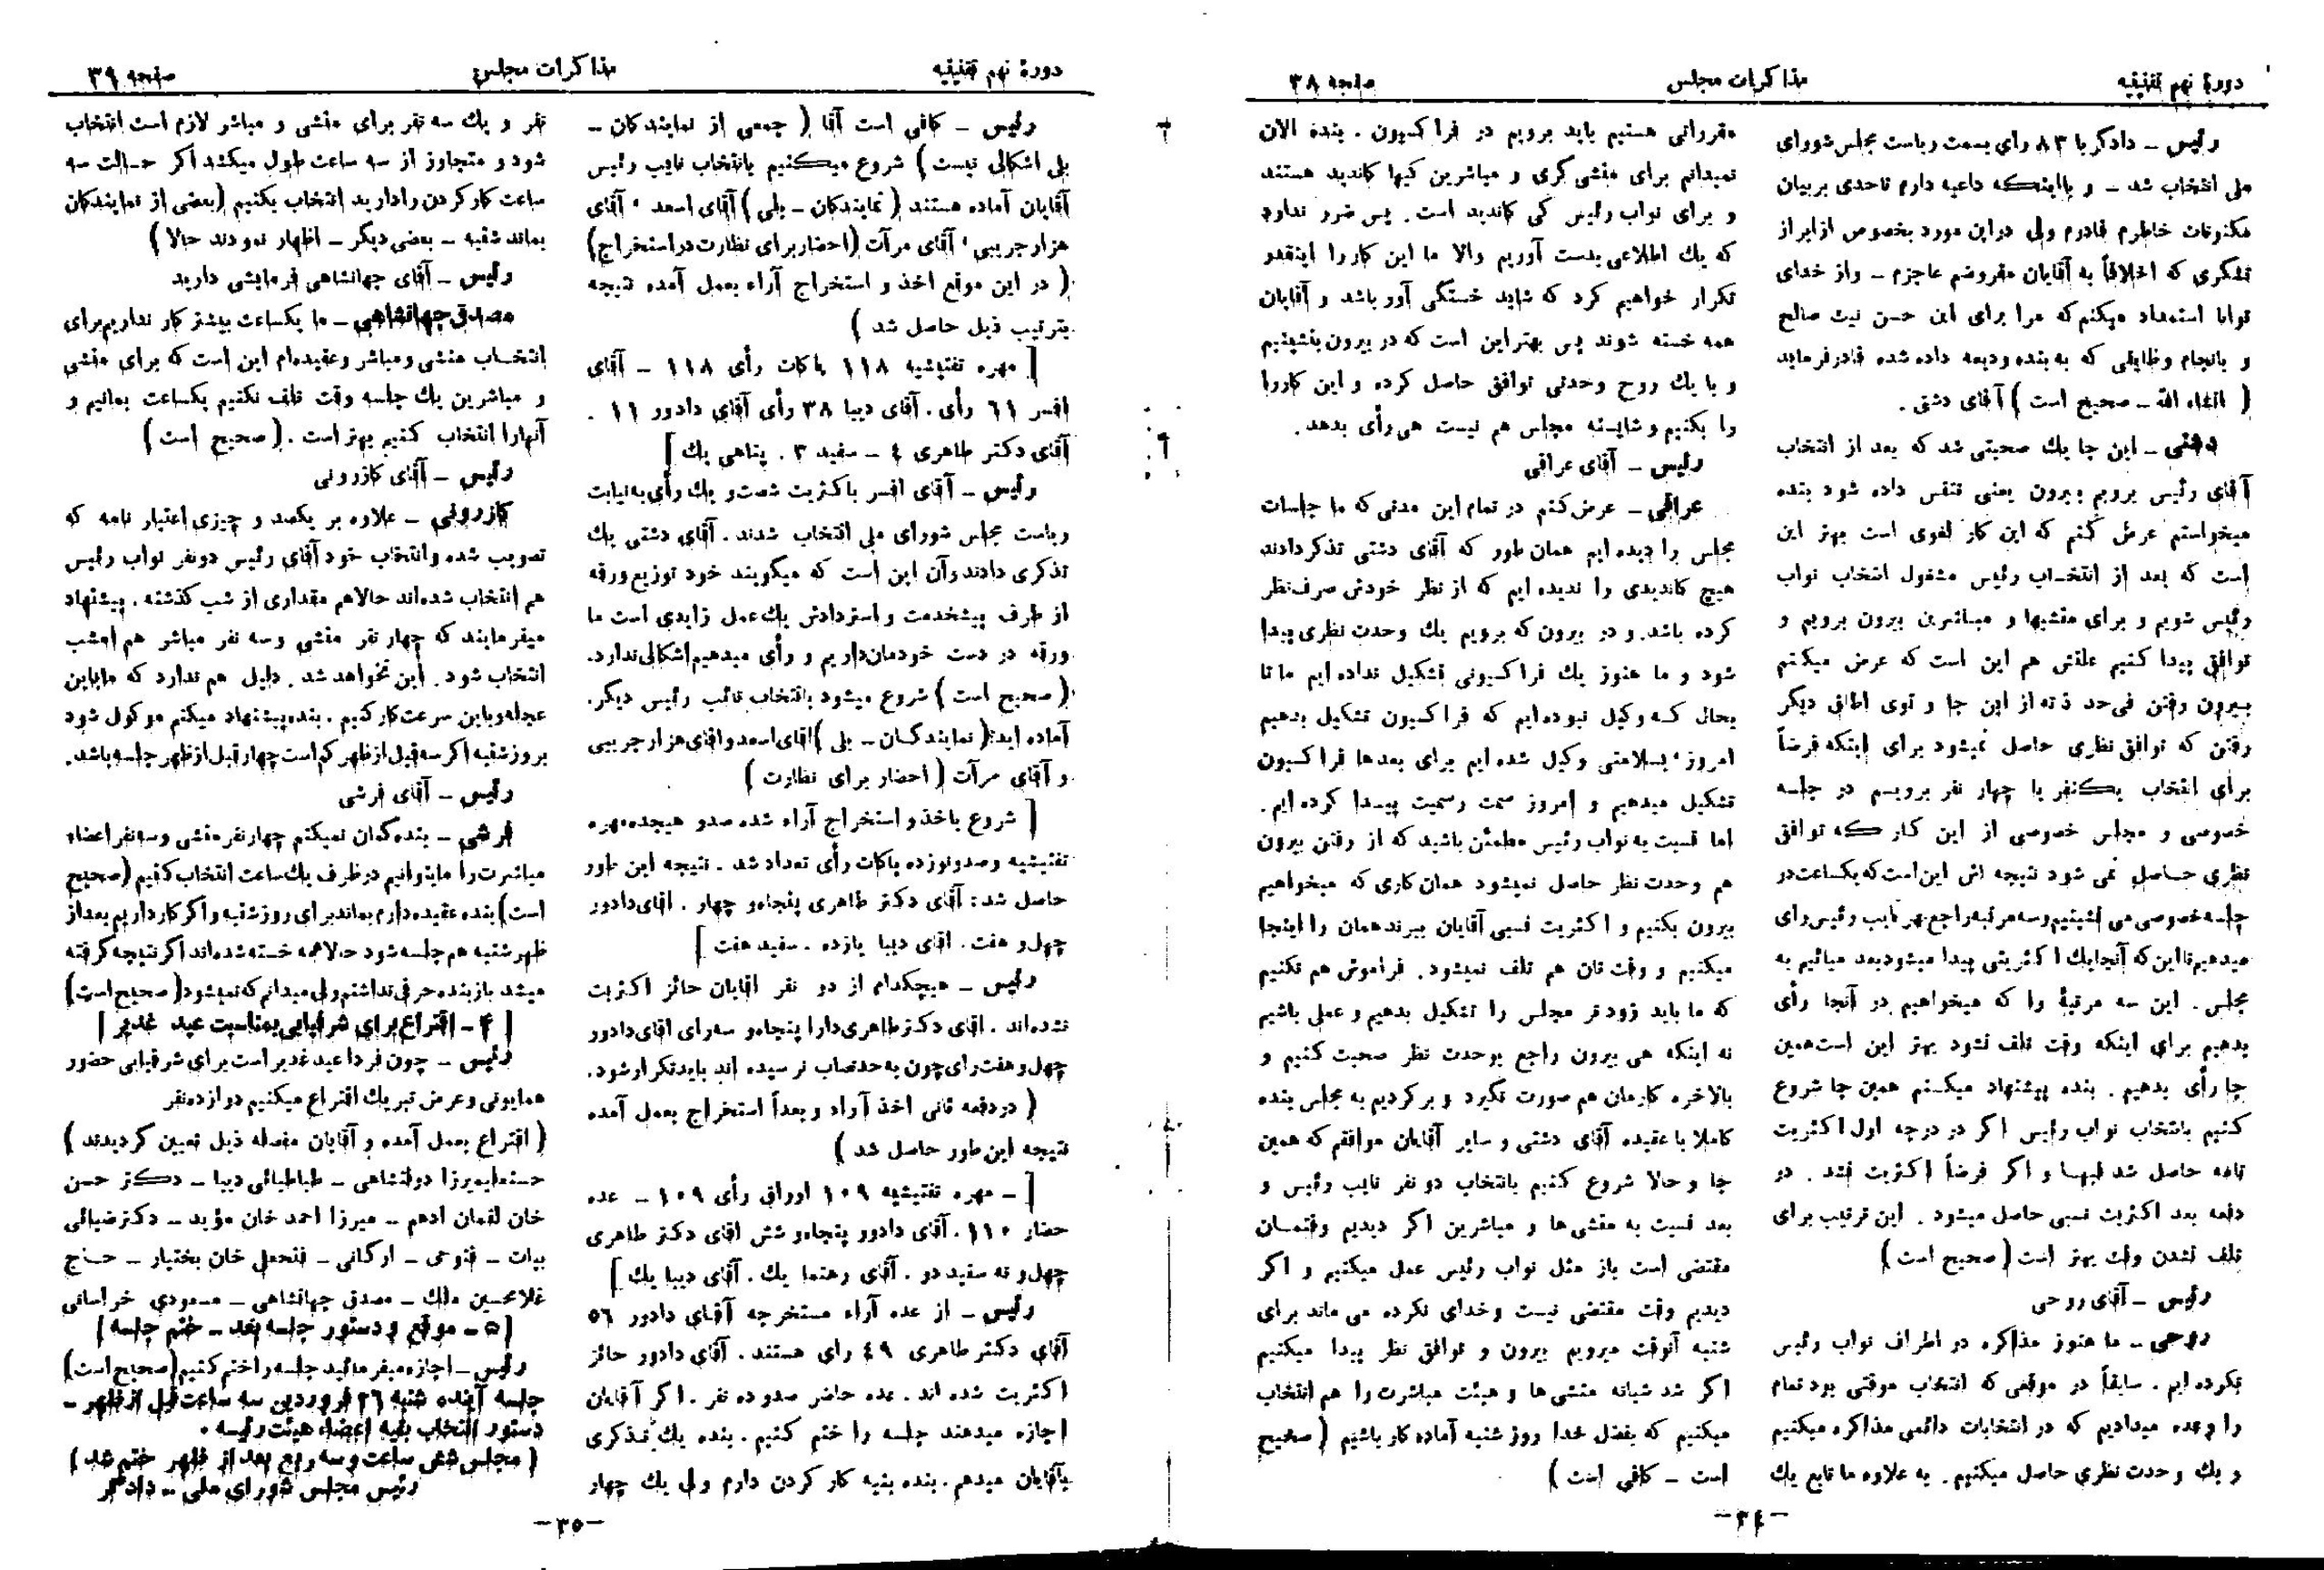 دورهٔ نهم تقنینیه
مذاکرات مجلس
صفحه ۳۸
رئیس ـ دادگر با ۸۳ رأی بسمت ریاست مجلس شورای
ملی انتخاب شد ـ و بااینکه داعیه دارم تاحدی بر بیان
مکنونات خاطرم قادرم ولی دراین مورد بخصوص ازابراز
تشکری که اخلاقاً به آقایان مفروضم عاجزم ـ واز خدای
توانا استمداد میکنم که مرا برای این حسن نیت صالح
و بانجام وظایفی که به بنده ودیعه داده شده قادرفرماید
( انشاء الله ـ صحیح است ) آقای دشتی .
دشتی ـ این جا یك صحبتی شد که بعد از انتخاب
آقای رئیس برویم بیرون یعنی تنفس داده شود بنده
میخواستم عرض کنم که این کار لغوی است بهتر این
است که بعد از انتخاب رئیس مشغول انتخاب نواب
رئیس شویم و برای منشیها و مباشرین بیرون برویم و
توافق پیدا کنیم علتش هم این است که عرض میکنم
بیرون رفتن فی حد ذته از این جا و توی اطاق دیگر
رفتن که توافق نظری حاصل نمیشود برای اینکه فرضاً
برای انتخاب یکنفر یا چهار نفر برویم در جلسه
خصوصی و مجلس خصوصی از این کار که توافق
نظری حاصل نمی شود نتیجه اش این است که یکساعت در
جلسه خصوصی می نشینیم وسه مرتبه راجع بهر نایب رئیس رای
میدهیم تا این که آنجا یك اکثریتی پیدا میشود بعد میائیم به
مجلس . این سه مرتبهٔ را که میخواهیم در آنجا رأی
بدهیم برای اینکه وقت تلف نشود بهتر این است همین
جا رأی بدهیم . بنده پیشنهاد میکنم همین جا شروع
کنیم بانتخاب نواب رئیس اگر در درجه اول اکثریت
تامه حاصل شد فبها و اگر فرضاً اکثریت نشد . در
دفعه بعد اکثریت نسبی حاصل میشود . این ترتیب برای
تلف نشدن وقت بهتر است ( صحیح است )
رئیس ـ آقای روحی
روحی ـ ما هنوز مذاکره در اطراف نواب رئیس
نکرده ایم . سابقاً در موقعی که انتخاب موقتی بود تمام
را وعده میدادیم که در انتخابات دائمی مذاکره میکنیم
و یك وحدت نظری حاصل میکنیم . به علاوه ما تابع یك
مقرراتی هستیم باید برویم در فراکسیون . بنده الان
نمیدانم برای منشی گری و مباشرین کیها کاندید هستند
و برای نواب رئیس کی کاندید است . پس ضرر ندارد
که یك اطلاعی بدست آوریم والا ما این کاررا اینقدر
تکرار خواهیم کرد که شاید خستگی آور باشد و آقایان
همه خسته شوند پس بهتر این است که در بیرون بنشینیم
و با یك روح وحدتی توافق حاصل کرده و این کاررا
را بکنیم و شایسته مجلس هم نیست هی رأی بدهد .
رئیس ـ آقای عراقی
عراقی ـ عرض کنم در تمام این مدتی که ما جلسات
مجلس را دیده ایم همان طور که آقای دشتی تذکر دادند
هیچ کاندیدی را ندیده ایم که از نظر خودش صرف نظر
کرده باشد. و در بیرون که برویم یك وحدت نظری پیدا
شود و ما هنوز یك فراکسیونی تشکیل نداده ایم ما تا
بحال که وکیل نبوده ایم که فراکسیون تشکیل بدهیم
امروز بسلامتی وکیل شده ایم برای بعدها فراکسیون
تشکیل میدهیم و امروز سمت رسمیت پیدا کرده ایم .
اما نسبت به نواب رئیس مطمئن باشید که از رفتن بیرون
هم وحدت نظر حاصل نمیشود همان کاری که میخواهیم
بیرون بکنیم و اکثریت نسبی آقایان ببرند همان را اینجا
میکنیم و وقت تان هم تلف نمیشود . فراموش هم نکنیم
که ما باید زودتر مجلس را تشکیل بدهیم و عملی باشیم
نه اینکه هی بیرون راجع بوحدت نظر صحبت کنیم و
بالاخره کارمان هم صورت نگیرد و برگردیم به مجلس بنده
کاملا با عقیده آقای دشتی و سایر آقایان موافقم که همین
جا و حالا شروع کنیم بانتخاب دو نفر نایب رئیس و
بعد نسبت به منشی ها و مباشرین اگر دیدیم وقتمان
مقتضی است باز مثل نواب رئیس عمل میکنیم و اگر
دیدیم وقت مقتضی نیست وخدای نکرده می ماند برای
شنبه آنوقت میرویم بیرون و توافق نظر پیدا میکنیم
اگر شد شبانه منشی ها و هیئت مباشرت را هم انتخاب
میکنیم که بفضل خدا روز شنبه آماده کار باشیم ( صحیح
است ـ کافی است )
ـ۳٤ـ
دورهٔ نهم تقنینیه
مذاکرات مجلس
صفحه ۳۹
رئیس ـ کافی است آقا ( جمعی از نمایندکان ـ
بلی اشکالی نیست ) شروع میکنیم بانتخاب نایب رئیس
آقایان آماده هستند ( نمایندکان ـ بلی ) آقای اسعد ، آقای
هزارجریبی ، آقای مرآت (احضار برای نظارت در استخراج)
( در این موقع اخذ و استخراج آراء بعمل آمده نتیجه
بترتیب ذیل حاصل شد )
[ مهره تفتیشیه ۱۱۸ پاکات رأی ۱۱۸ ـ آقای
افسر ٦۱ رأی . آقای دیبا ۳۸ رأی آقای دادور ۱۱ .
آقای دکتر طاهری ٤ ـ سفید ۳ . پناهی یك ]
رئیس ـ آقای افسر باکثریت شصت و یك رأی به نیابت
ریاست مجلس شورای ملی انتخاب شدند . آقای دشتی یك
تذکری دادند وآن این است که میگویند خود توزیع ورقه
از طرف پیشخدمت و استردادش یك عمل زایدی است ما
ورقه در دست خودمان داریم و رأی میدهیم اشکالی ندارد.
( صحیح است ) شروع میشود بانتخاب نائب رئیس دیگر.
آماده اید؟( نمایندگان ـ بلی )اقای اسعد و اقای هزارجریبی
و آقای مرآت ( احضار برای نظارت )
[ شروع باخذ و استخراج آراء شده صدو هیجده مهره
تفتیشیه و صدونوزده پاکات رأی تعداد شد . نتیجه این طور
حاصل شد: آقای دکتر طاهری پنجاه و چهار . اقای دادور
چهل و هفت . اقای دیبا یازده . سفید هفت ]
رئیس ـ هیچکدام از دو نفر اقایان حائز اکثریت
نشده اند . اقای دکتر طاهری دارا پنجاه و سه رای اقای دادور
چهل و هفت رای چون به حد نصاب نرسیده اند باید تکرار شود.
( در دفعه ثانی اخذ آراء و بعداً استخراج بعمل آمده
نتیجه این طور حاصل شد )
[ ـ مهره تفتیشیه ۱۰۹ اوراق رأی ۱۰۹ ـ عده
حضار ۱۱۰ . آقای دادور پنجاه و شش اقای دکتر طاهری
چهل و نه سفید دو . آقای رهنما یك . آقای دیبا یك ]
رئیس ـ از عده آراء مستخرجه آقای دادور ٥٦
آقای دکتر طاهری ٤۹ رای هستند . آقای دادور حائز
اکثریت شده اند . عده حاضر صدو ده نفر . اگر آقایان
اجازه میدهند جلسه را ختم کنیم . بنده یك تذکری
بآقایان میدهم . بنده بنیه کار کردن دارم ولی یك چهار
نفر و یك سه نفر برای منشی و مباشر لازم است انتخاب
شود و متجاوز از سه ساعت طول میکشد اگر حالت سه
ساعت کار کردن را دارید انتخاب بکنیم (بعضی از نمایندکان
بماند شنبه ـ بعضی دیگر ـ اظهار نمودند حالا )
رئیس ـ آقای جهانشاهی فرمایشی دارید
مصدق جهانشاهی ـ ما یکساعت بیشتر کار نداریم برای
انتخاب منشی ومباشر وعقیده ام این است که برای منشی
و مباشرین یك جلسه وقت تلف نکنیم یکساعت بمانیم و
آنهارا انتخاب کنیم بهتر است . ( صحیح است )
رئیس ـ آقای کازرونی
کازرونی ـ علاوه بر یکصد و چیزی اعتبار نامه که
تصویب شده وانتخاب خود آقای رئیس دونفر نواب رئیس
هم انتخاب شده اند حالا هم مقداری از شب گذشته . پیشنهاد
میفرمایند که چهار نفر منشی وسه نفر مباشر هم امشب
انتخاب شود . این نخواهد شد . دلیل هم ندارد که ما باین
عجله و باین سرعت کار کنیم . بنده پیشنهاد میکنم موکول شود
بروز شنبه اگر سه قبل از ظهر کم است چهار قبل از ظهر جلسه باشد.
رئیس ـ آقای فرشی
فرشی ـ بنده گمان نمیکنم چهار نفر منشی و سه نفر اعضاء
مباشرت را ما بتوانیم در ظرف یك ساعت انتخاب کنیم (صحیح
است) بنده عقیده دارم بماند برای روز شنبه و اگر کار داریم بعد از
ظهر شنبه هم جلسه شود حالا همه خسته شده اند اگر نتیجه گرفته
میشد باز بنده حرفی نداشتم ولی میدانم که نمیشود( صحیح است)
[ ۴ ـ اقتراع برای شرفیابی بمناسبت عید غدیر ]
رئیس ـ چون فردا عید غدیر است برای شرفیابی حضور
همایونی و عرض تبریك اقتراع میکنیم دوازده نفر
( اقتراع بعمل آمده و آقایان مفصله ذیل تعیین گردیدند )
حسنعلیمیرزا دولتشاهی ـ طباطبائی دیبا ـ دکتر حسن
خان لقمان ادهم ـ میرزا احمد خان مؤید ـ دکتر ضیائی
بیات ـ فتوحی ـ ارکانی ـ فتحعلی خان بختیار ـ حاج
غلامحسین ملك ـ مصدق جهانشاهی ـ مسعودی خراسانی
[ ۵ ـ موقع و دستور جلسه بعد ـ ختم جلسه ]
رئیس ـ اجازه میفرمائید جلسه را ختم کنیم(صحیح است)
جلسه آینده شنبه ۲٦ فروردین سه ساعت قبل از ظهر ـ
دستور انتخاب بقیه اعضاء هیئت رئیسه .
( مجلس شش ساعت وسه ربع بعد از ظهر ختم شد )
رئیس مجلس شورای ملی ـ دادگر
ـ۳۵ـ